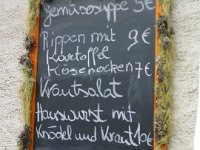 Gemüsesuppe 5€
Rippen mit 9€
Kartoffel
Käsenocken 7€
Krautsalat
Hauswurst mit
Knödel und Kraut 10€